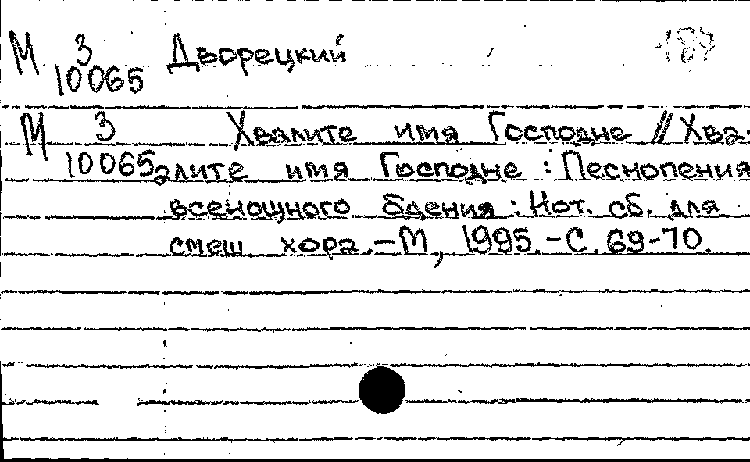 М 3 Дворецкий 187
10065
М 3 Хвалите имя Господне // Хва-
10065 алите имя Господне : Песнопения
всенощного бдения : Нот. сб. для
смеш хора. – М, 1995. – С. 69-70.